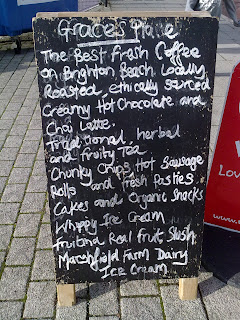 Graces Place
The Best Fresh Coffee
on Brighton Beach Locally
Roasted, ethically sourced
Creamy Hot Chocolate and
Chai Latte.
Traditional, herbal
and Fruity Tea
Chunky Chips Hot Sausage
Rolls and Fresh Pasties
Cakes and Organic Snacks
Whippy Ice Cream
Real Fruit Slush
Marshfield Farm Dairy
Ice Cream